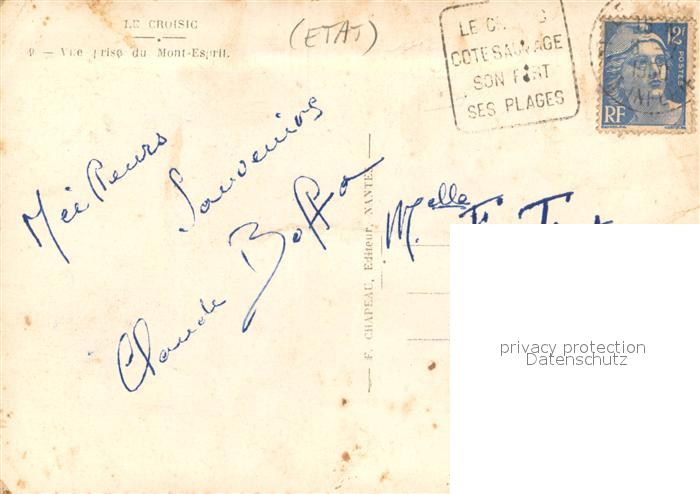 LE CROISIC
9 — Vue prise du Mont-Esprit.
(ETAT)
LE CROISIC
COTE SAUVAGE
SON PORT
SES PLAGES
12F
POSTES
RF
Meilleurs
Souvenirs
Claude Boffo
F. CHAPEAU, Editeur, NANTES
Melle
privacy protection
Datenschutz